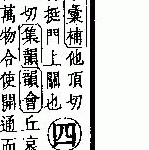 彙補他頂切
挺門上關也
四
切集韻韻會丘哀
萬物合使開通而